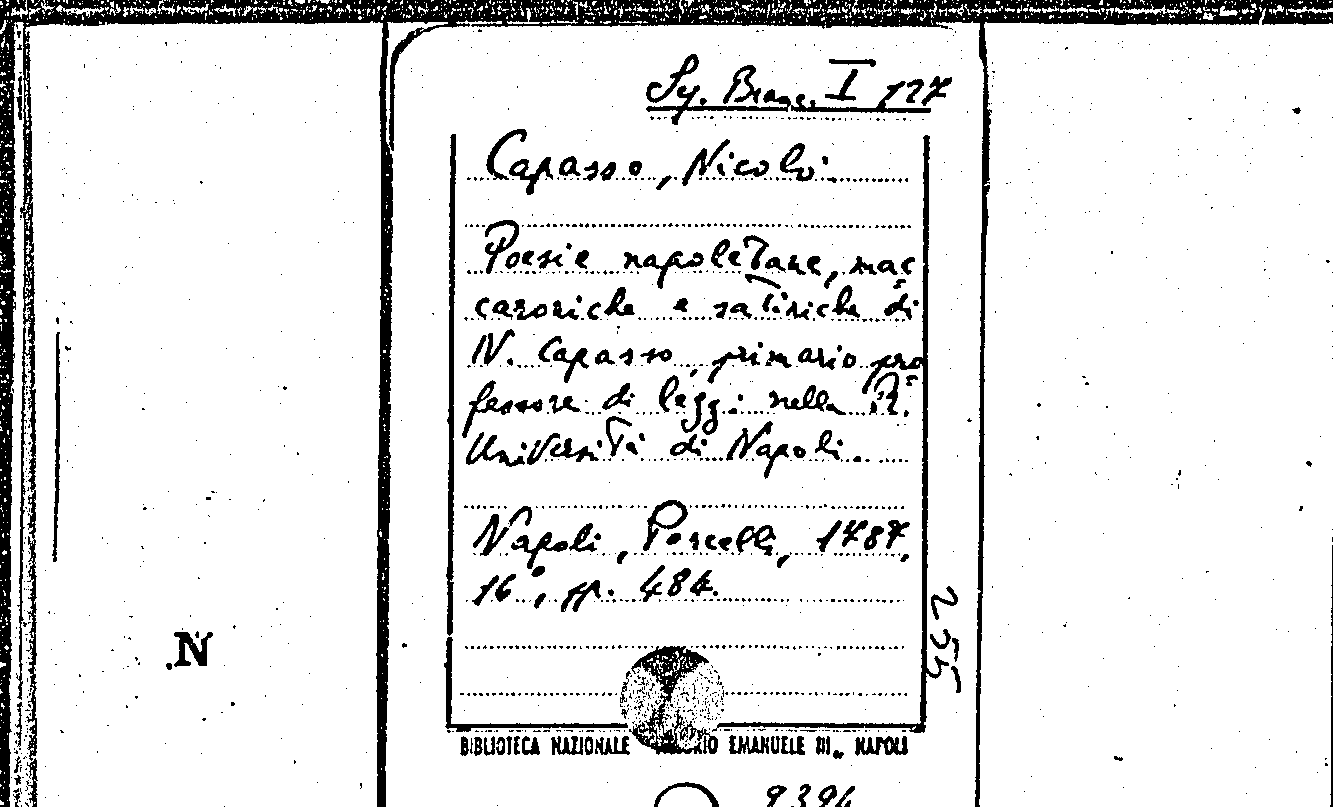 Sy. Branc. I 127
Capasso, Nicolò.
Poesie napoletane, mac=
caroniche e satiriche di
N. Capasso, primario pro=
fessore di leggi nella R.
Università di Napoli.
Napoli, Porcelli, 1787,
16°, pp. 484.
255
.N
BIBLIOTECA NAZIONALE RIO EMANUELE III„ NAPOLI
9394